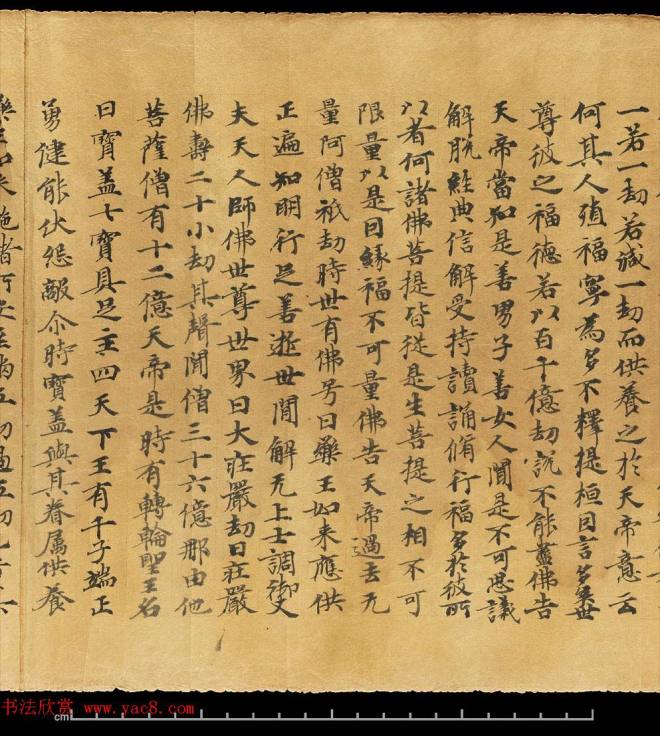 一若一劫若減一劫而供養之於天帝意云
何其人殖福寧為多不釋提桓因言多矣世
尊彼之福德若以百千億劫說不能盡佛告
天帝當知是善男子善女人聞是不可思議
解脫經典信解受持讀誦脩行福多於彼所
以者何諸佛菩提皆從是生菩提之相不可
限量以是因緣福不可量佛告天帝過去无
量阿僧祇劫時世有佛号曰藥王如來應供
正遍知明行足善逝世間解无上士調御丈
夫天人師佛世尊世界曰大莊嚴劫曰莊嚴
佛壽二十小劫其聲聞僧三十六億那由他
菩薩僧有十二億天帝是時有轉輪聖王名
曰寶蓋七寶具足主四天下王有千子端正
勇健能伏怨敵尒時寶蓋與其眷属供養
藥王如來施諸所安至滿五劫過五劫已
书法欣赏 www.yac8.com
cm